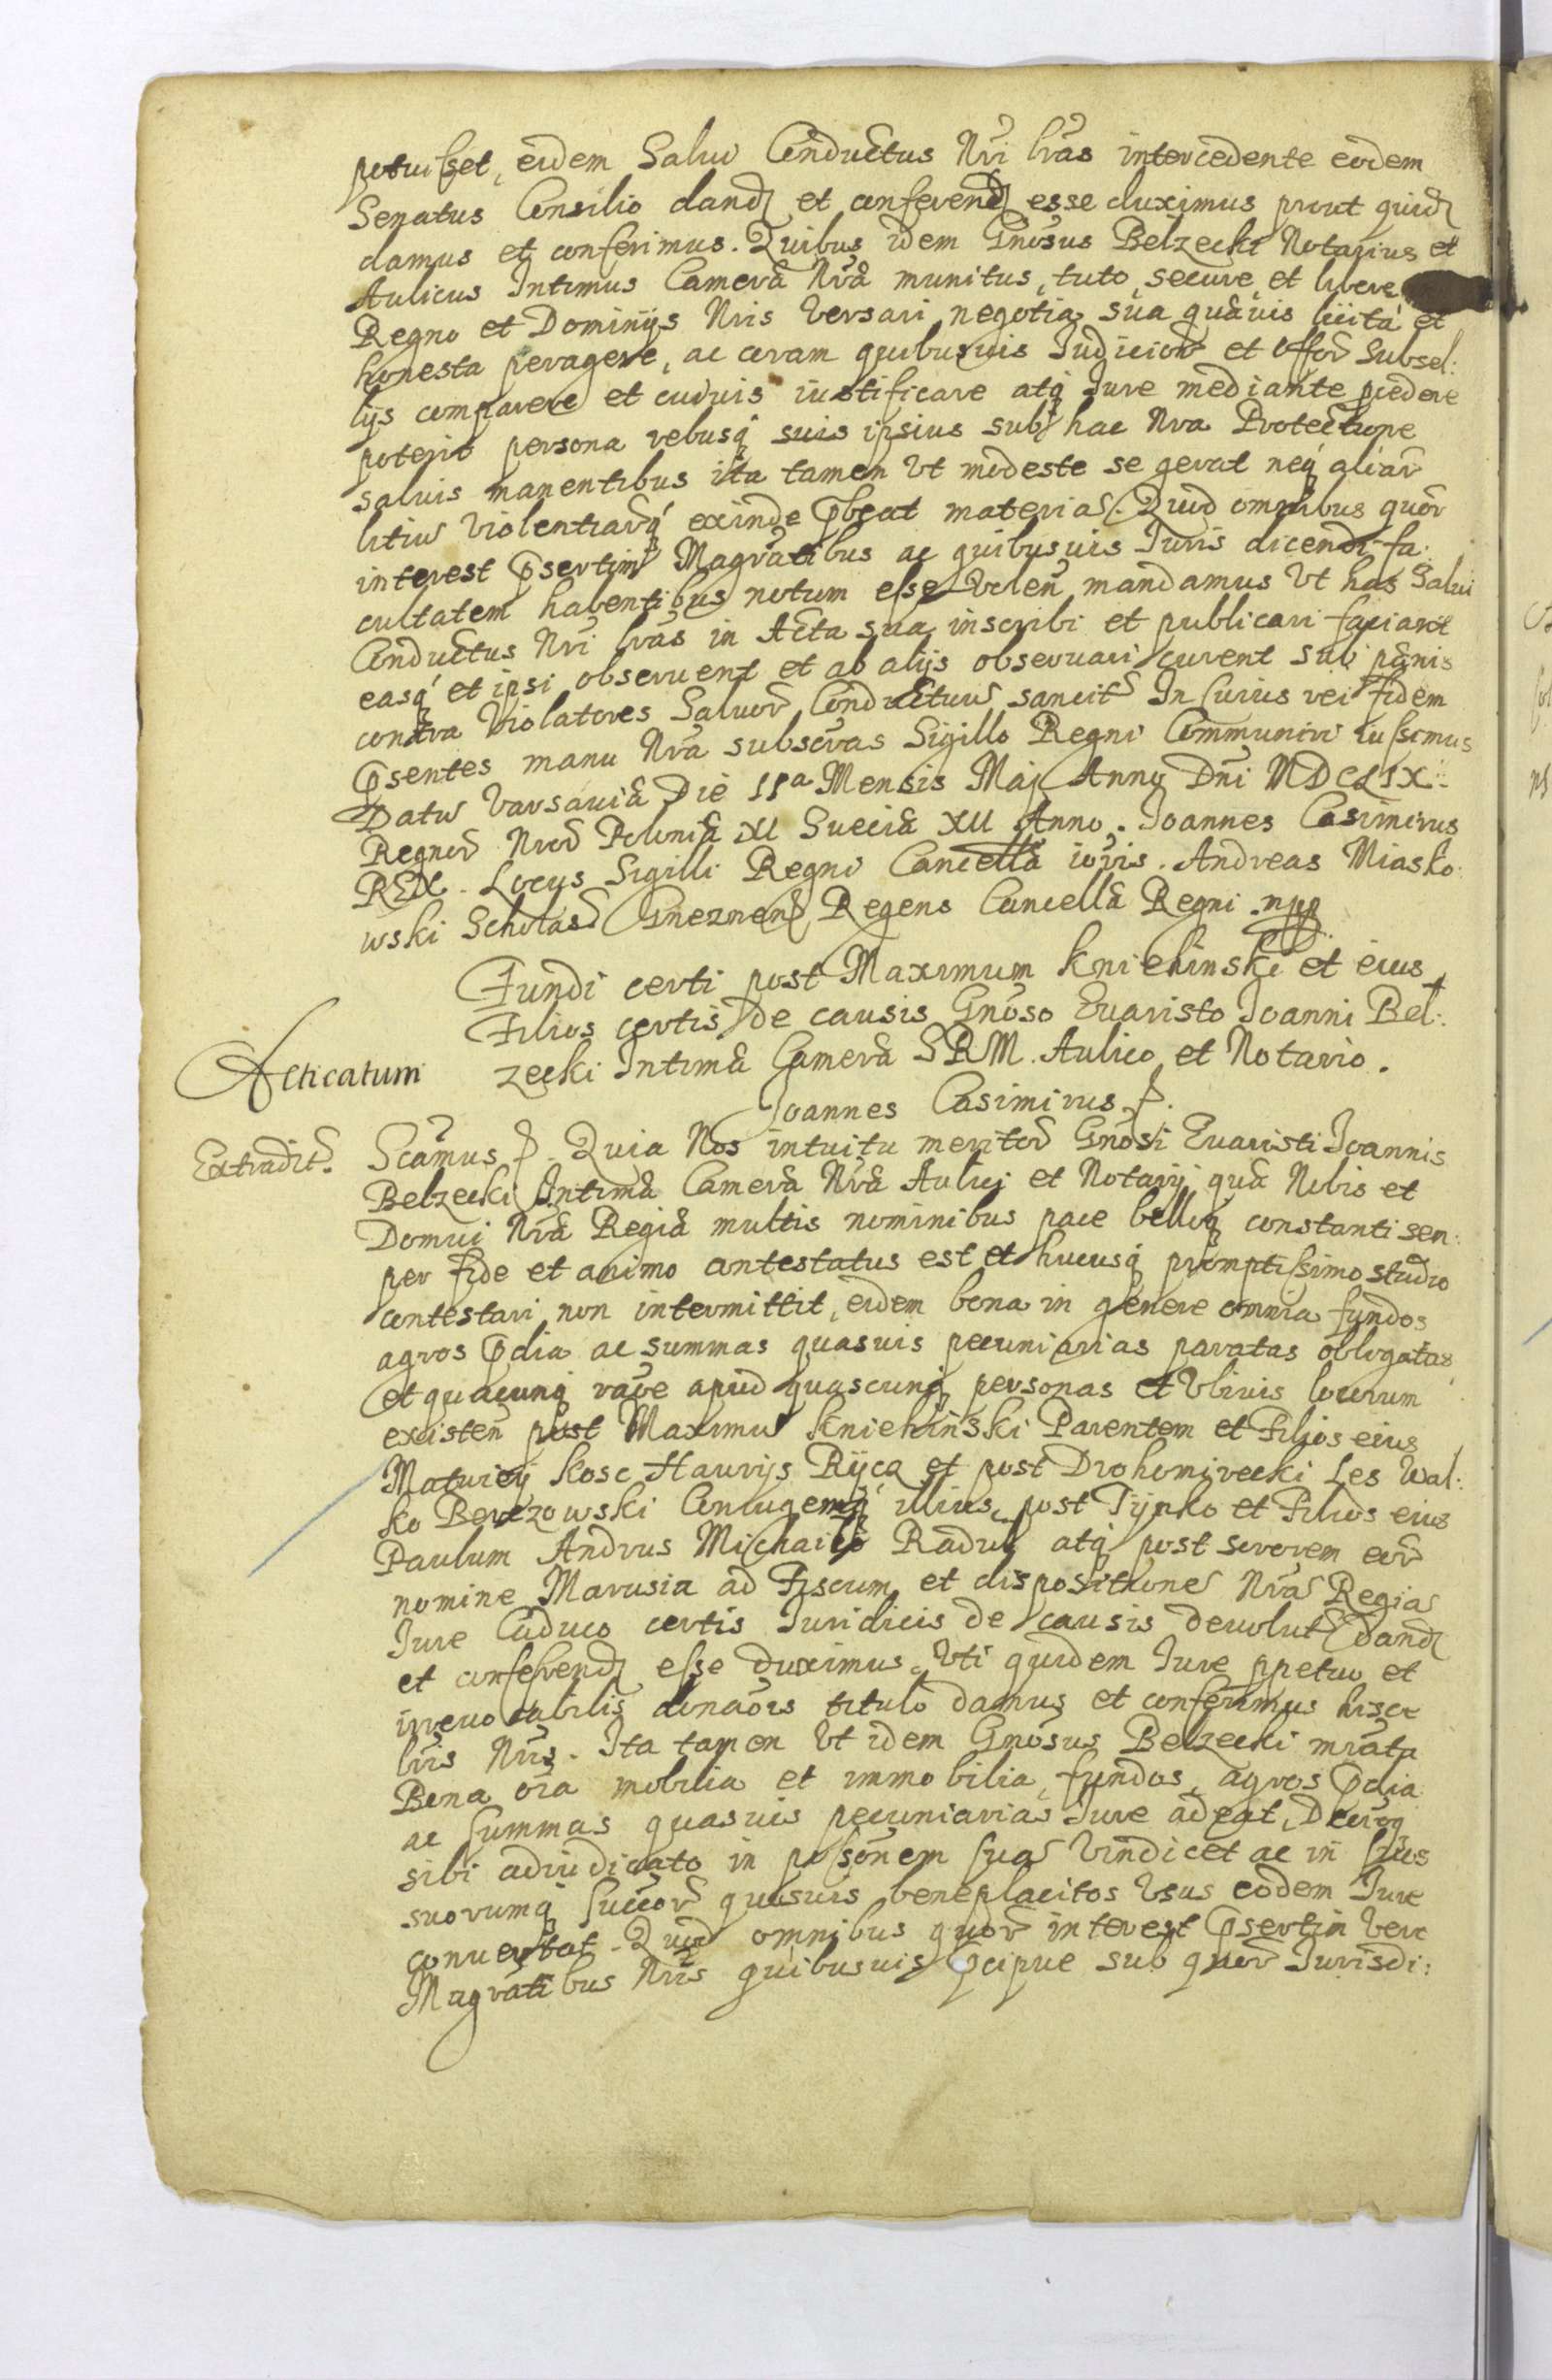 potuisset, eidem Salvi Conductus Nri lras intercedente eodem
Senatus Consilio dand et conferend esse duximus prout quid
damus et conferimus. Quibus idem Gnosus Belzecki Notarius et
Aulicus Intimus Camerae Nrae munitus, tuto, secure, et libere
Regno et Dominijs Nris versari negotia sua quaevis licita et
honesta peragere, ac coram quibusuis Judicior et Offor Subsel:
lijs comparere et cuiuis iustificare atq Jure mediante pcedere
poterit persona rebusq suis ipsius sub hac Nra Protectione
saluis manentibus ita tamen Ut modeste se gerat neq aliar
litiu violentiarq exinde pbeat materia. Quod omnibus quor
interest psertim Magratibus ac quibusuis Juris dicendi fa:
cultatem habentibus notum esse volen mandamus Ut has Salui
Conductus Nri lras in Acta sua inscribi et publicari faciant
easq et ipsi obseruent et ab alijs obseruari curent sub paenis
contra Violatores Saluor Conductuu sancit In Cuius rei fidem
psentes manu Nra subscras Sigillo Regni Communiri iussimus
Datu Varsauiae Die 11a Mensis Maij Anno Dni MDCLIX
Regnor Nror Poloniae XI Sueciae XII Anno. Joannes Casimirus
REX. Locus Sigilli Regni Cancellae ioris. Andreas Miasko:
wski Scholas Gneznen Regens Cancellae Regni mpp
Fundi certi post Maximum Kniehinski et eius
Filios certis de causis Gnoso Euaristo Joanni Bel:
Acticatum zecki Intimae Camerae SRM. Aulico et Notario.
Joannes Casimirus
Extradit. Scamus. Quia Nos intuitu meritor Gnosi Euaristi Joannis
Belzecki Intimae Camerae Nrae Aulici et Notarij quae Nobis et
Domui Nrae Regiae multis nominibus pace belloq constanti sem:
per fide et animo contestatus est et hucusq promptissimo studio
contestari non intermittit, eidem bona in genere omnia fundos
agros pdia ac summas quasuis pecuniarias paratas obligatas
et quacunq raoe apud quascunq personas et Ubiuis locorum
existen post Maximu Kniehinski Parentem et Filios eius
Matwiej Kosc Hawrys Ryca et post Drohomirecki Les Wal:
ko Berezowski Coniugemq illius, post Tymko et Filios eius
Paulum Andrus Michailo Radul atq post sororem eor
nomine Marusia ad Fiscum et dispositione Nra Regia
Jure Caduco certis Juridicis de causis deuolut dand
et conferend esse duximus. Uti quidem Jure ppetuo et
irreuocabilis donaois titulo damus et conferimus hisce
lris Nris. Ita tamen Ut idem Gnosus Belzecki mrata
Bona oia mobilia et immobilia, fundos, agros pdia
ac summas quasuis pecuniarias Jure adeat, Decroq
sibi adiudicato in possonem sua Vindicet ac in suos
suorumq succor quosuis beneplacitos Usus eodem Jure
conuertat. Quod omnibus quor interest psertim vero
Magratibus Nris quibusuis pcipue sub quor Jurisdi: